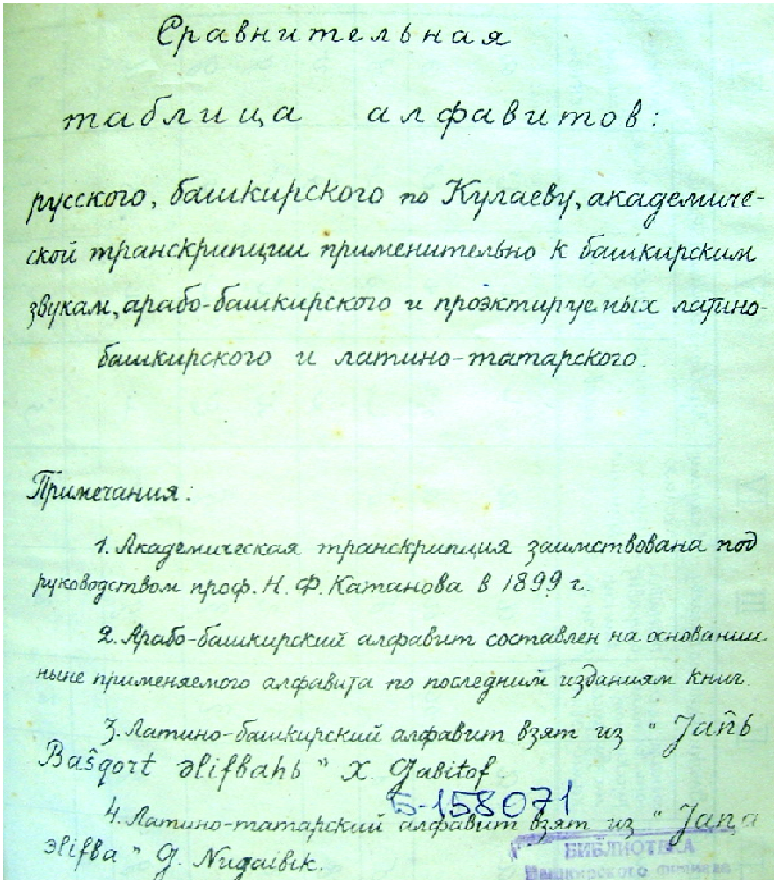 Сравнительная
таблица алфавитов:
русского, башкирского по Кулаеву, академиче-
ской транскрипции применительно к башкирским
звукам, арабо-башкирского и проэктируемых латино-
башкирского и латино-татарского.
Примечания:
1. Академическая транскрипция заимствована под
руководством проф. Н. Ф. Катанова в 1899 г.
2. Арабо-башкирский алфавит составлен на основании
ныне применяемого алфавита по последним изданиям книг.
3. Латино-башкирский алфавит взят из "Jaꞑь
Baŝqort əlifbahь" X. Gabitof.
Б-158071
4. Латино-татарский алфавит взят из "Jaꞑa
əlifba" G.
БИБЛИОТЕКА
Башкирского филиала